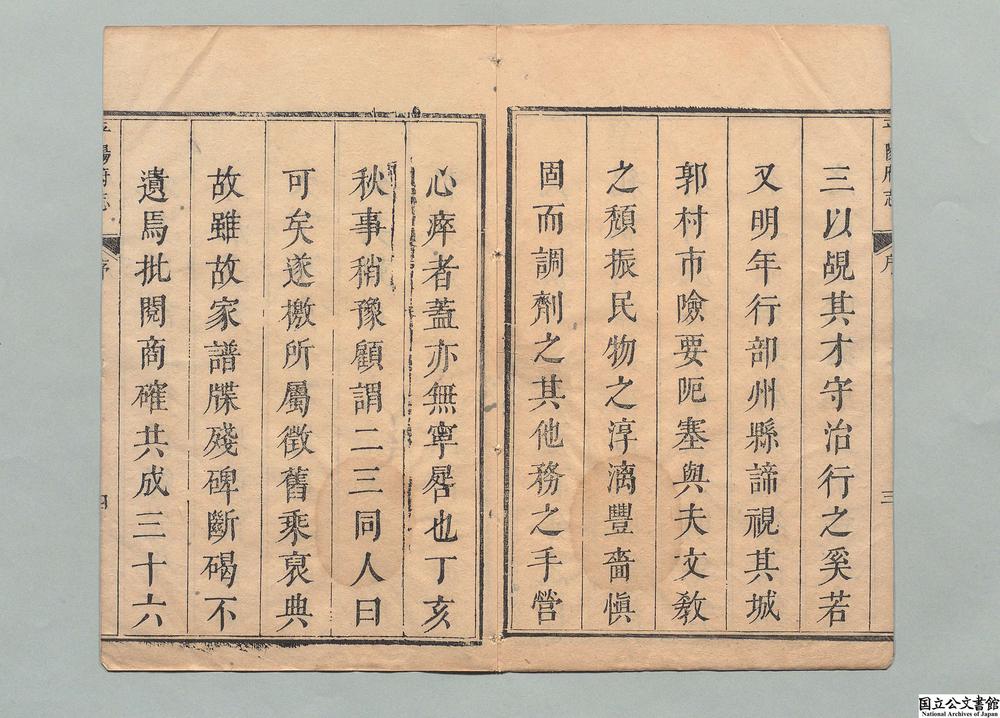 三以覘其才守治行之奚若
又明年行部州縣諦視其城
郭村市險要阨塞與夫文教
之頹振民物之淳漓豐嗇愼
固而調劑之其他務之手營
心瘁者蓋亦無寧晷也丁亥
秋事稍豫顧謂二三同人曰
可矣遂檄所屬徵舊乘裒典
故雖故家譜牒殘碑斷碣不
遺焉批閱商確共成三十六
平陽府志
序
三
平陽府志
序
四
国立公文書館
National Archives of Japan